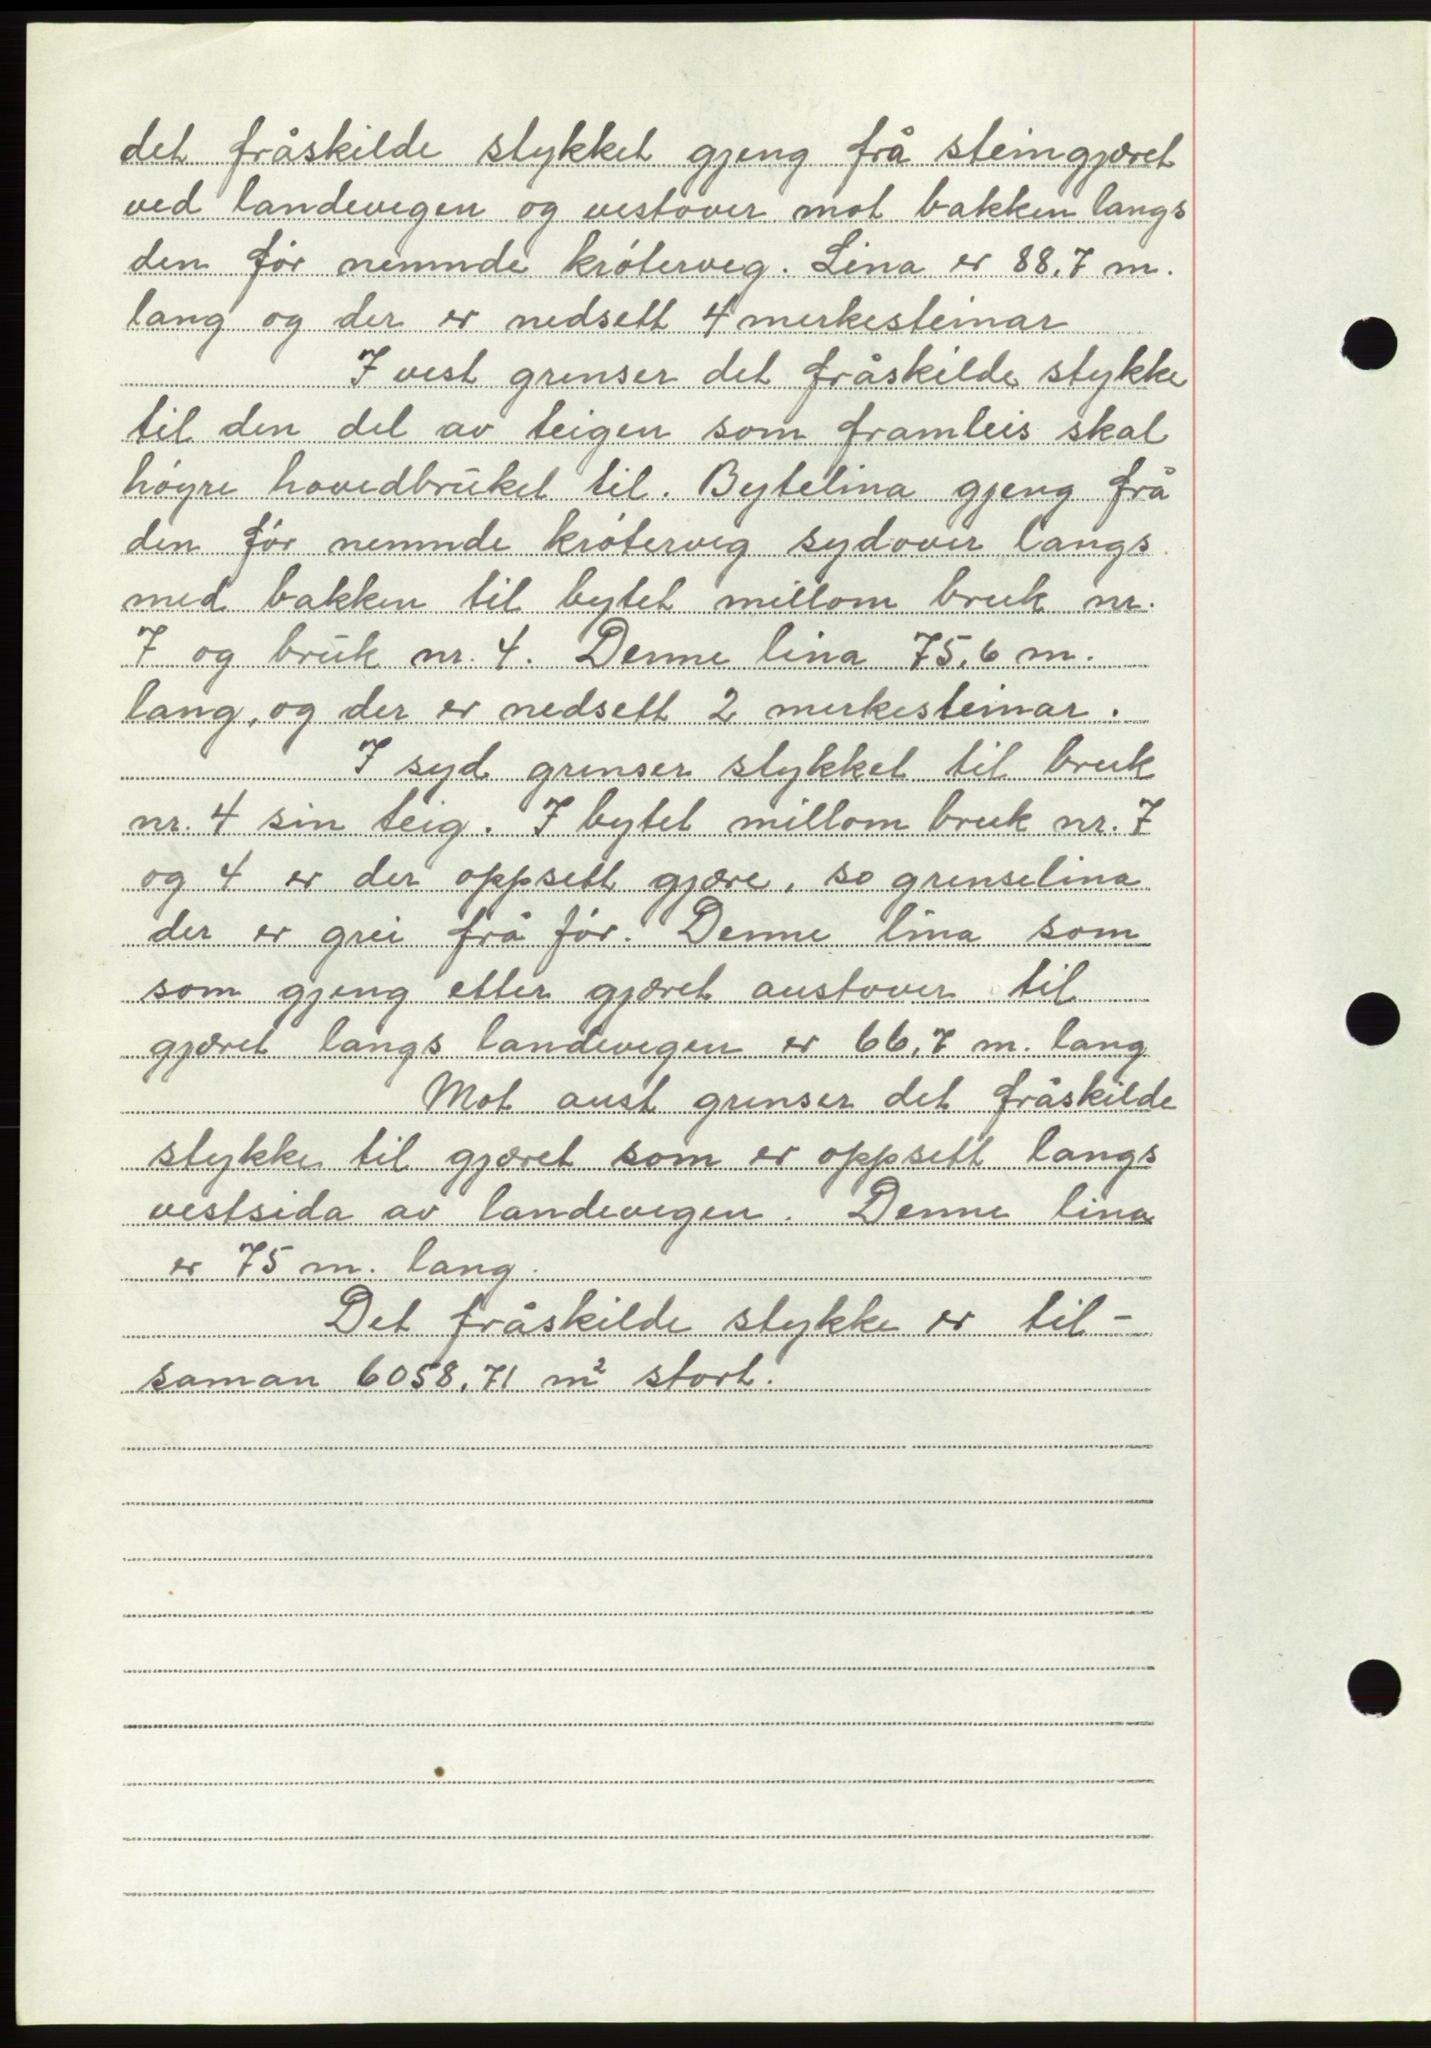 det fråskilde stykket gjeng frå steingjæret
ved landevegen og vestover mot bakken langs
den för nemnde kröterveg. Lina er 88,7 m.
lang og der er nedsett 4 merkesteinar
I vest grenser det fråskilde stykke
til den del av teigen som framleis skal
höyre hovedbruket til. Bytelina gjeng frå
den för nemnde kröterveg sydover langs
med bakken til bytet millom bruk nr.
7 og bruk nr. 4. Denne lina 75,6 m.
lang, og der er nedsett 2 merkesteinar.
I syd grenser stykket til bruk
nr. 4 sin teig. I bytet millom bruk nr. 7
og 4 er der oppsett gjære, so grenselina
der er grei frå för. Denne lina som
som gjeng etter gjæret austover til
gjæret langs landevegen er 66,7 m. lang
Mot aust grenser det fråskilde
stykke til gjæret som er oppsett langs
vestsida av landevegen. Denne lina
er 75 m. lang.
Det fråskilde stykke er til-
saman 6058,71 m² stort.